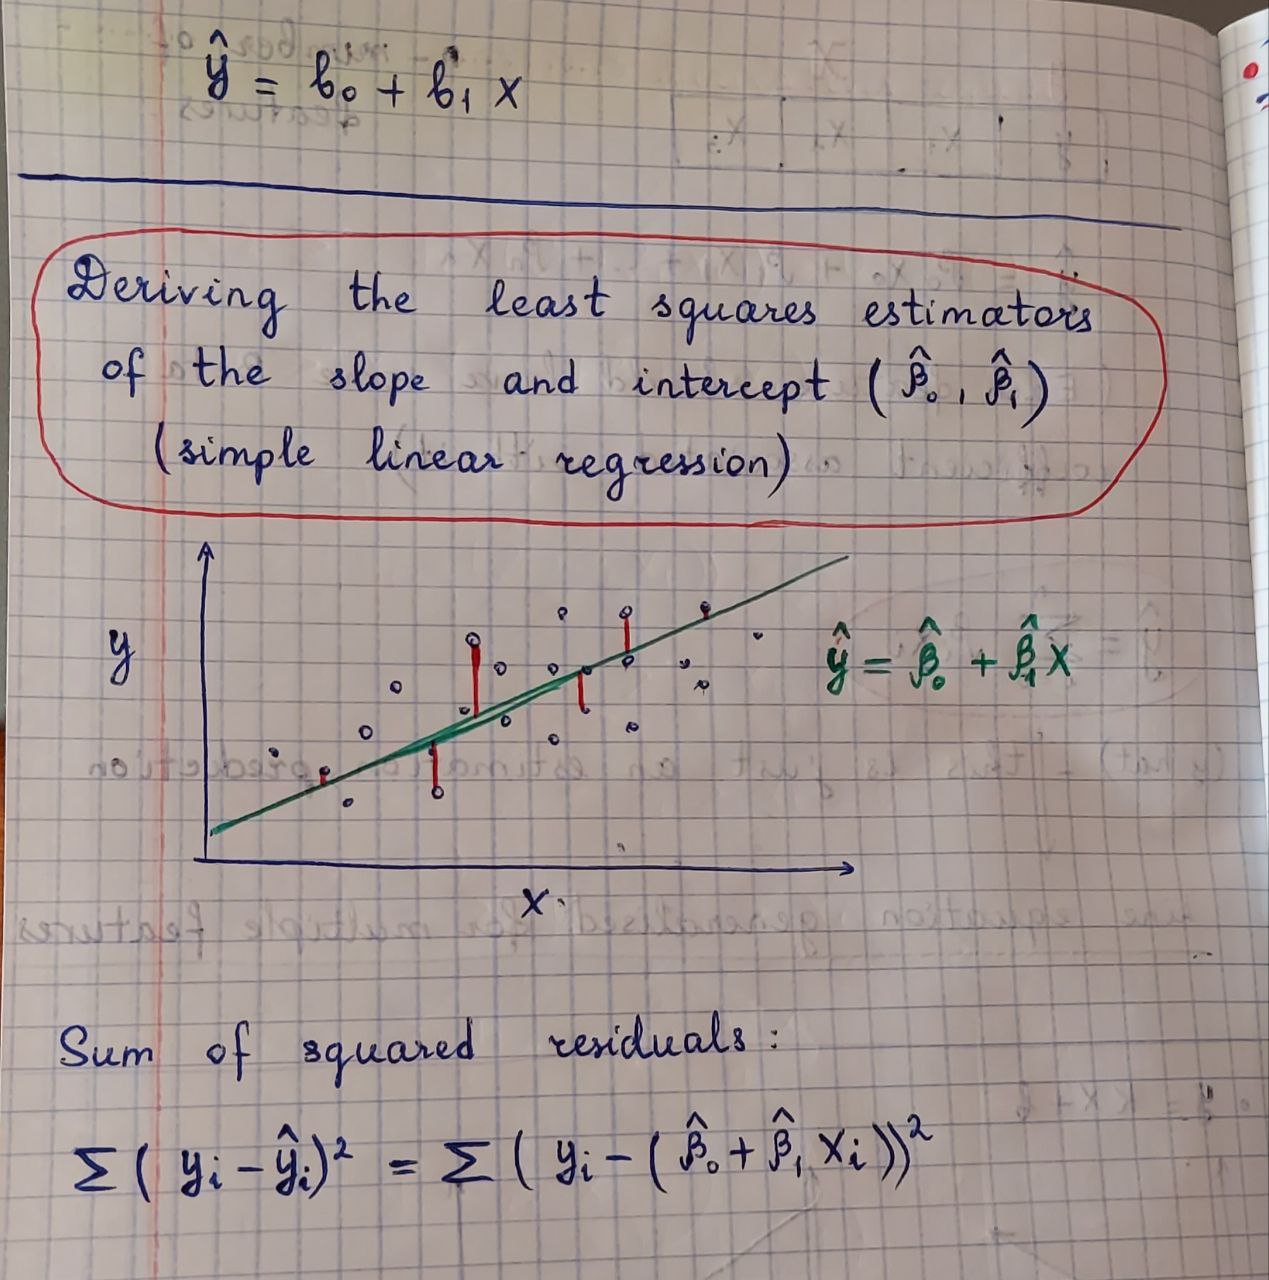 ŷ = b₀ + b₁ x
Deriving the least squares estimators
of the slope and intercept (β̂₀, β̂₁)
(simple linear regression)
y
ŷ = β̂₀ + β̂₁x
x
Sum of squared residuals:
Σ( yᵢ - ŷᵢ)² = Σ ( yᵢ - (β̂₀ + β̂₁ xᵢ))²